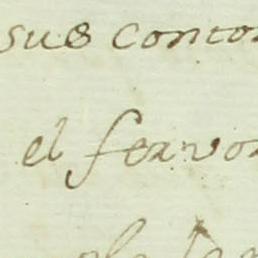 sus conto
el fervor